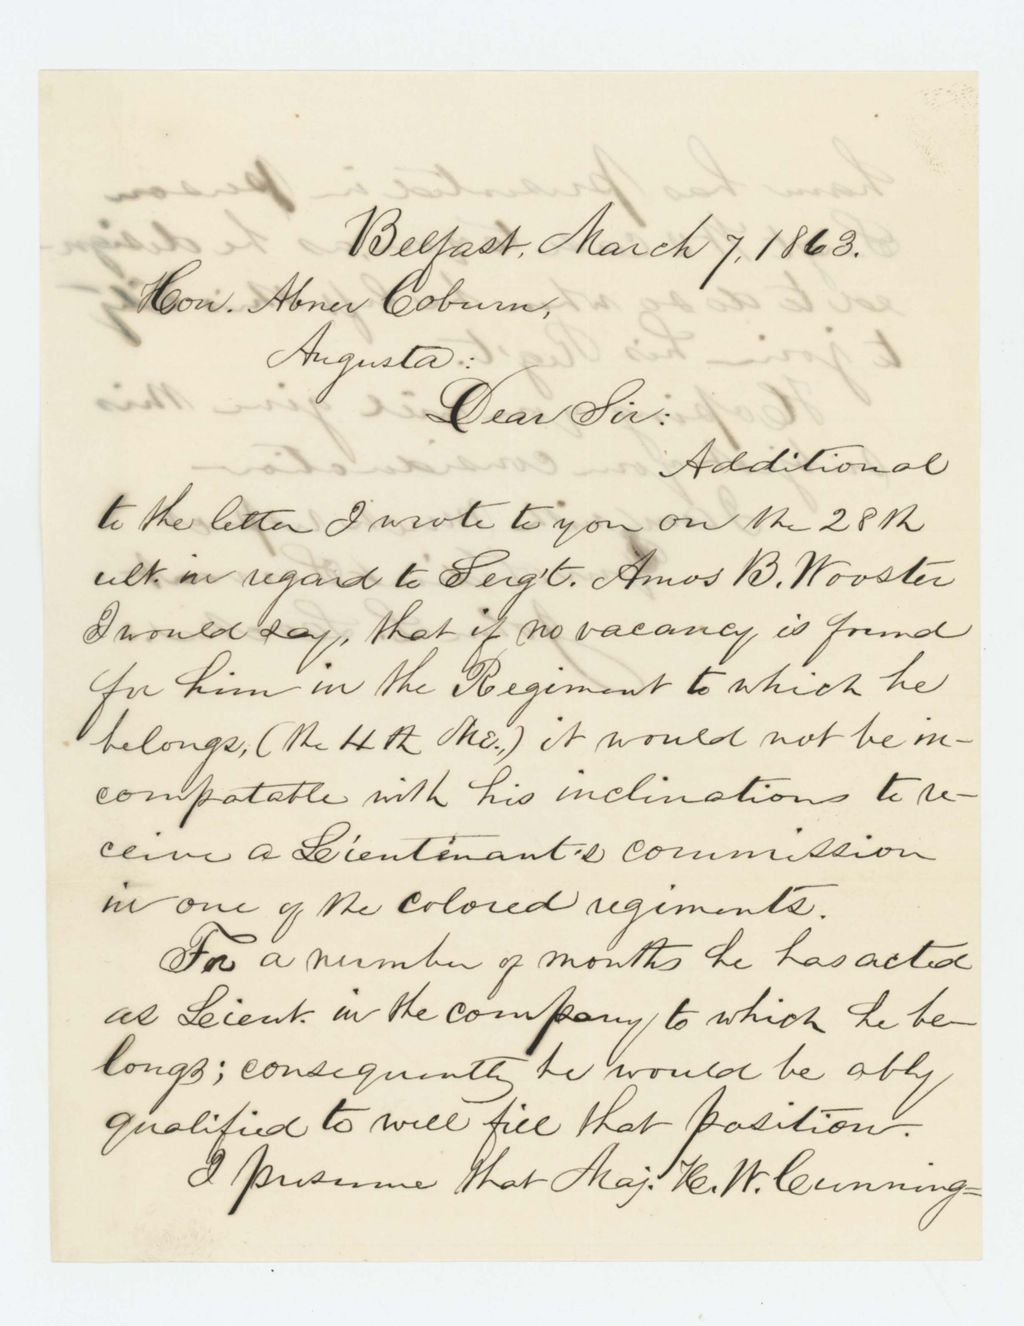 Belfast, March 7, 1863.
Hon. Abner Coburn,
Augusta:
Dear Sir:
Additional
to the letter I wrote to you on the 28th
ult. in regard to Serg't. Amos B. Wooster
I would say, that if no vacancy is found
for him in the Regiment to which he
belongs, (the 4th Me.,) it would not be in-
compatable with his inclinations to re-
ceive a Leientenant's commission
in one of the colored regiments.
For a number of months he has acted
as Leient. in the company to which he be-
longs; consequently he would be ably
qualified to well fill that position.
I presume that Maj. H. W. Cunning=